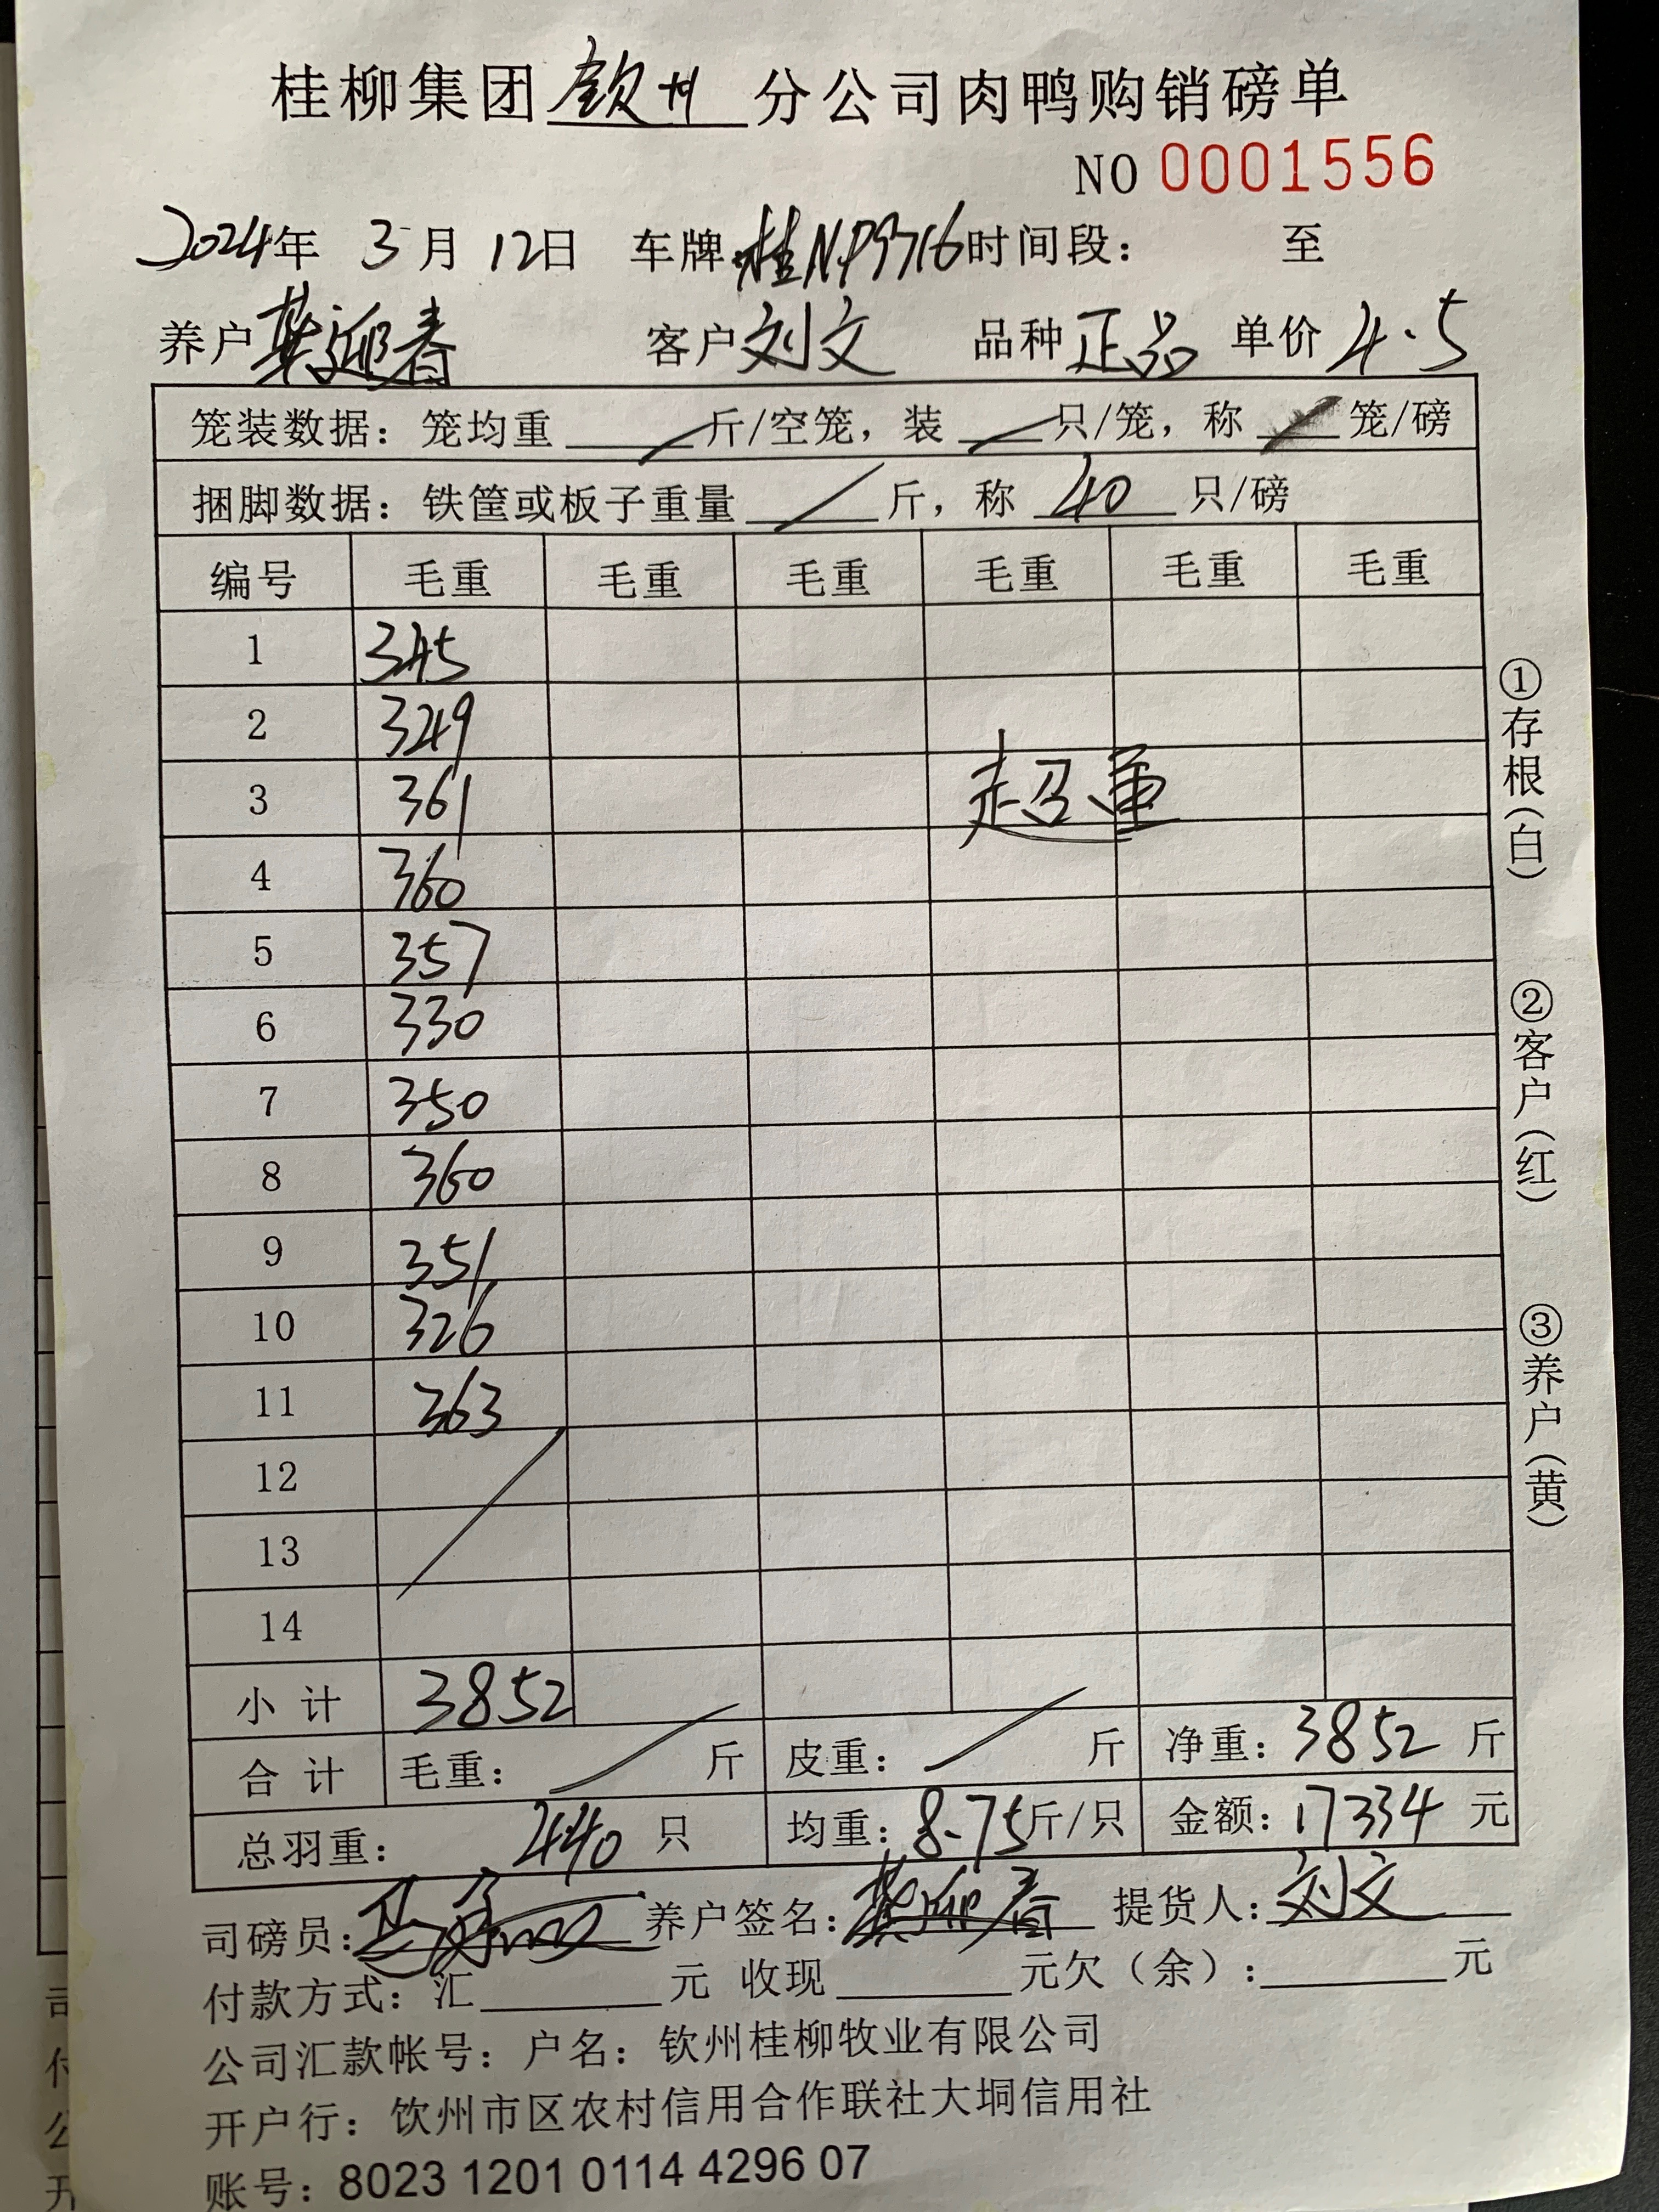 桂柳集团钦州分公司肉鸭购销磅单
NO 0001556
2024年 3月 12日 车牌桂NP9716时间段: 至
养户龚迎春 客户刘文 品种正品 单价4.5
笼装数据: 笼均重 斤/空笼, 装 只/笼, 称 笼/磅
捆脚数据: 铁筐或板子重量 斤, 称 40 只/磅
编号 毛重 毛重 毛重 毛重 毛重 毛重
1 345
2 349
3 361 超重
4 360
5 357
6 330
7 350
8 360
9 351
10 326
11 363
12
13
14
小计 3852
合计 毛重: 斤 皮重: 斤 净重: 3852 斤
总羽重: 440 只 均重: 8.75斤/只 金额: 17334 元
司磅员: 养户签名: 龚迎春 提货人: 刘文
付款方式: 汇 元 收现 元欠(余): 元
公司汇款帐号: 户名: 钦州桂柳牧业有限公司
开户行: 钦州市区农村信用合作联社大垌信用社
账号: 8023 1201 0114 4296 07
①存根(白)
②客户(红)
③养户(黄)